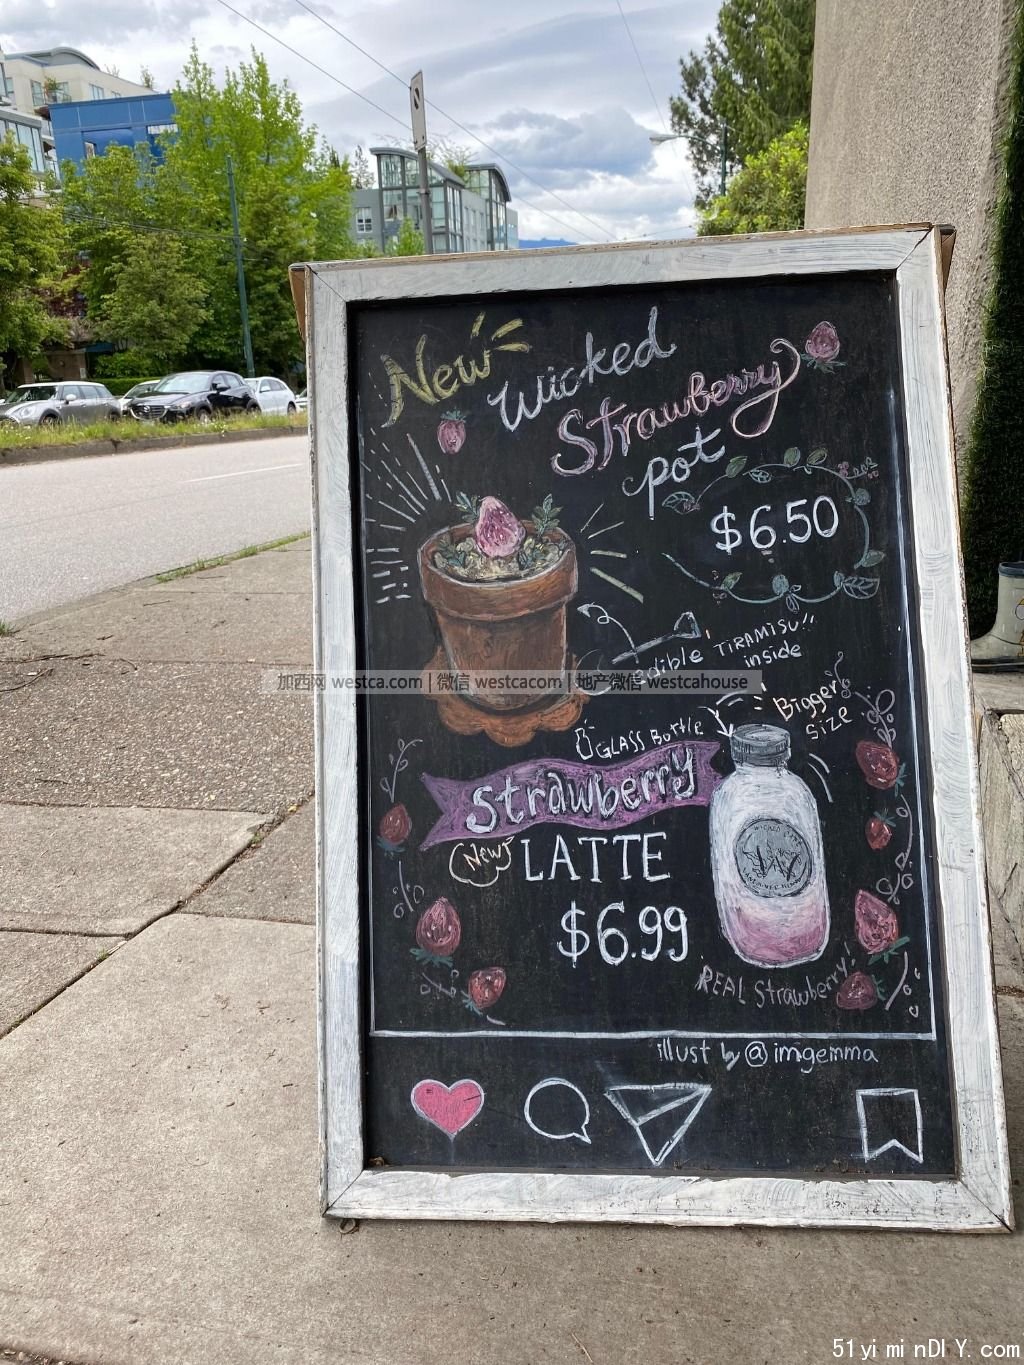 New
Wicked
Strawberry
pot
$6.50
edible TIRAMISU!!
inside
Bigger
size
GLASS Bottle
Strawberry
New
LATTE
$6.99
REAL strawberry!
illust by @imgemma
加西网 westca.com | 微信 westcacom | 地产微信 westcahouse
51yiminDIY.com